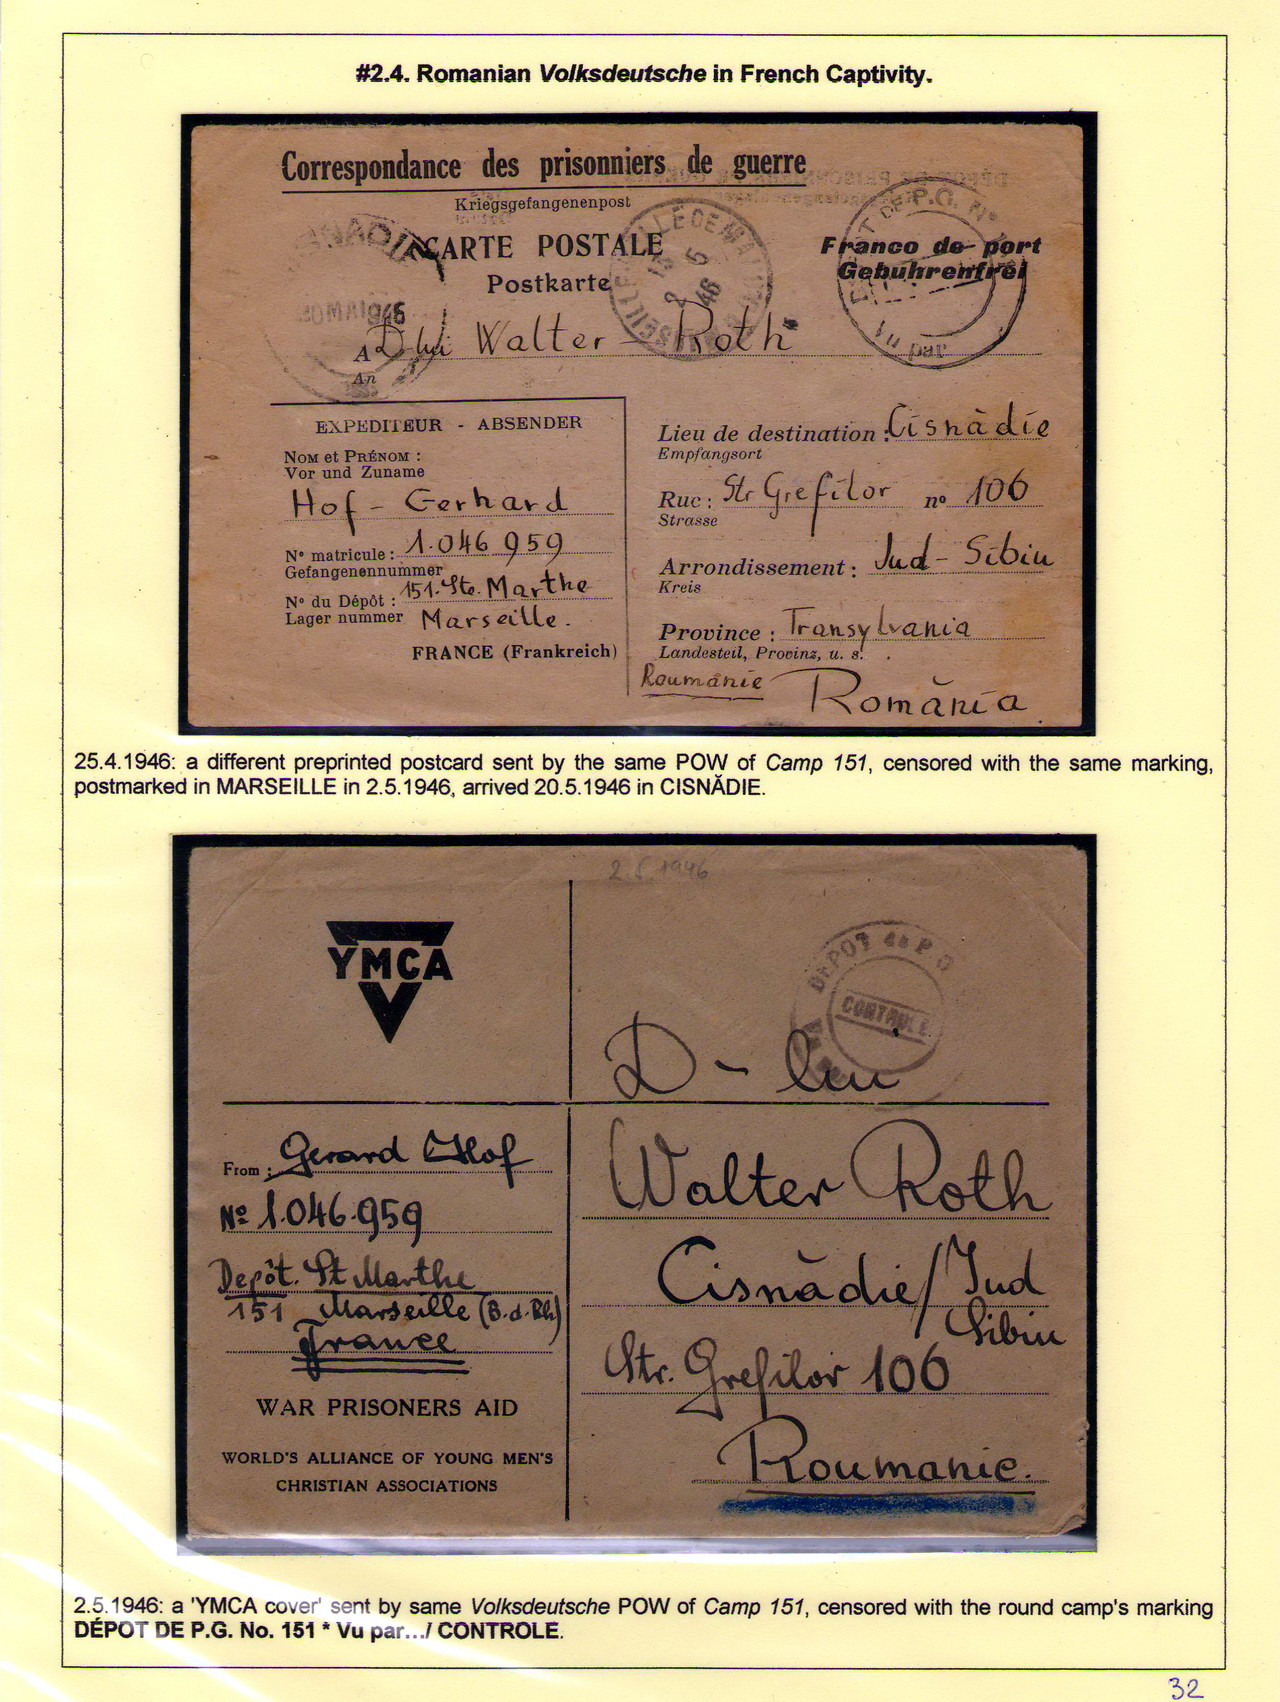 #2.4. Romanian Volksdeutsche in French Captivity.
Correspondance des prisonniers de guerre
Kriegsgefangenenpost
CARTE POSTALE
Postkarte
Franco de port
Gebührenfrei
DEPOT DE P.G. N°
Vu par
2 5 46
20 MAI 1946
A D-lui Walter Roth
An
EXPEDITEUR - ABSENDER
NOM et PRÉNOM :
Vor und Zuname
Hof - Gerhard
N° matricule : 1.046 959
Gefangenennummer
N° du Dépôt : 151. Ste. Marthe
Lager nummer Marseille.
FRANCE (Frankreich)
Lieu de destination : Cisnàdie
Empfangsort
Rue : Str Grefilor n° 106
Strasse
Arrondissement : Jud - Sibiu
Kreis
Province : Transylvania
Landesteil, Provinz, u. s.
Roumanie România.
25.4.1946: a different preprinted postcard sent by the same POW of Camp 151, censored with the same marking,
postmarked in MARSEILLE in 2.5.1946, arrived 20.5.1946 in CISNĂDIE.
2.5.1946
YMCA
DEPOT de P G
CONTROLE
D-lui
Walter Roth
Cisnàdie/Jud
Sibiu
Str. Grefilor 106
Roumanie.
From : Gerard Hof
No 1.046.959
Depôt. St Marthe
151 Marseille (B.d.Rh)
France
WAR PRISONERS AID
WORLD'S ALLIANCE OF YOUNG MEN'S
CHRISTIAN ASSOCIATIONS
2.5.1946: a 'YMCA cover' sent by same Volksdeutsche POW of Camp 151, censored with the round camp's marking
DÉPOT DE P.G. No. 151 * Vu par.../ CONTROLE.
32